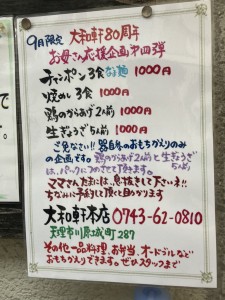 9月限定 大和軒80周年
お母さん応援企画第四弾
チャンポン3食 1000円
焼めし 3食 1000円
鶏のからあげ2人前 1000円
生ぎょうざ5人前 1000円
ごめんなさい!! 器自参のおもちかえりのみ
の企画です。鶏のからあげ2人前と生ぎょうざ
5人前は、パックにつめさせて頂きます。
ママさんたまには、息抜きして下さいネ!!
ちなみに予約して頂くと助かります
大和軒本店 0743-62-0810
天理市川原城町287
その他一品料理、お弁当、オードブルなど
おもちかえりできます。ぜひスタッフまで